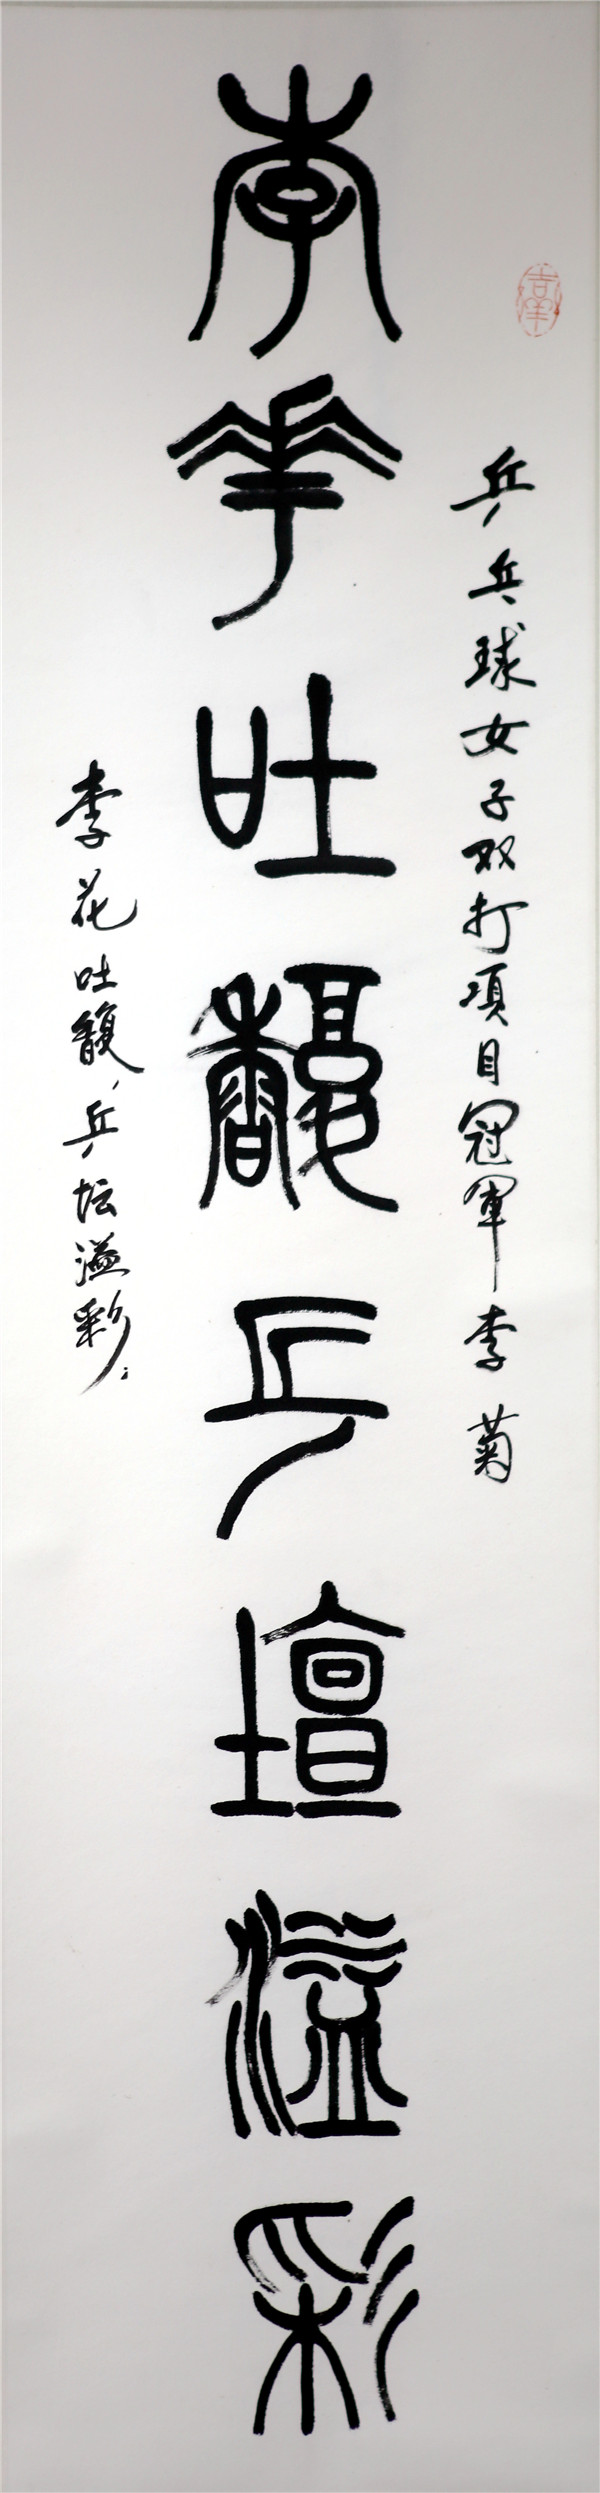 乒乓球女子双打项目冠軍李菊
李花吐馥乒壇溢彩
李花吐馥，乒坛溢彩。